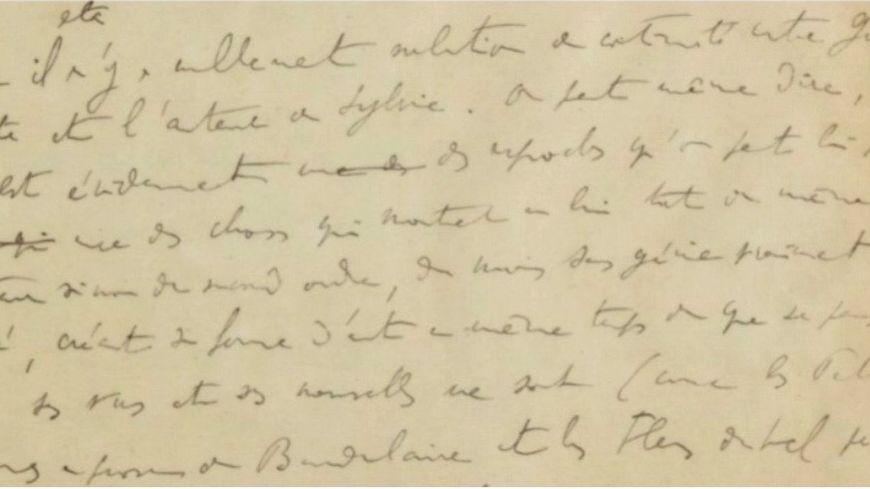 et a
il n'y a nullement solution de continuité entre Gé
te et l'auteur de Sylvie. On peut même dire,
est évidemment une des des reproches qu'on peut lui
qui une des choses qui montrent en lui tout de même
teur sinon de second ordre, du moins sans génie vraiment
é, créant sa forme d'art en même temps que sa pens
ses vers et ses nouvelles ne sont (comme les Peti
mes en prose de Baudelaire et les Fleurs du Mal pa